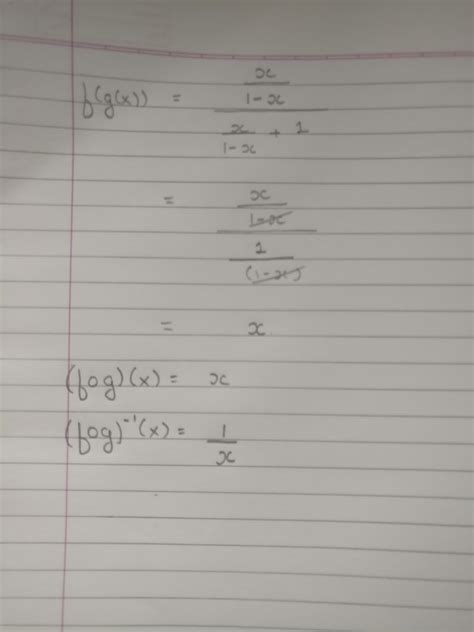 f(g(x)) = (x/(1-x))/(x/(1-x) + 1)
= (x/(1-x))/(1/(1-x))
= x
(fog)(x) = x
(fog)⁻¹(x) = 1/x